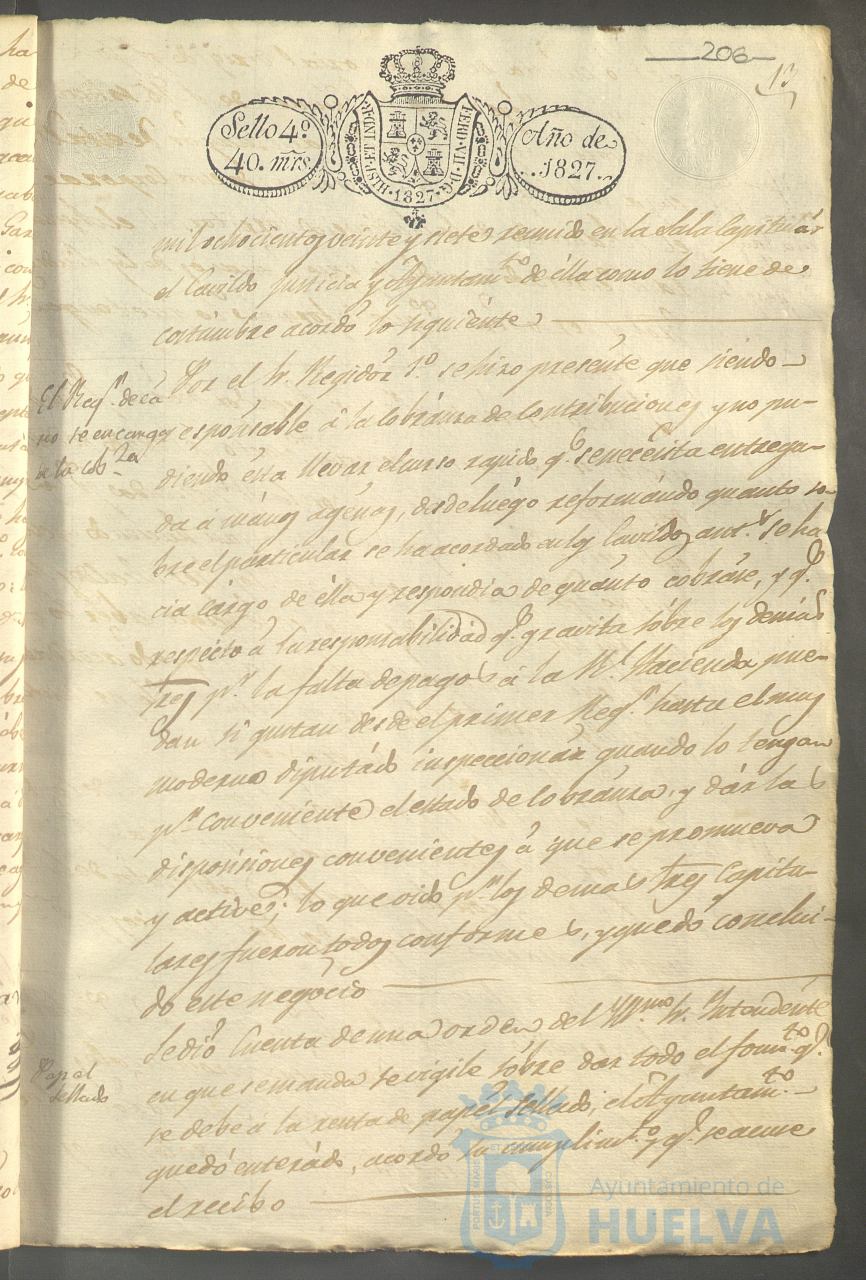 206
13
Sello 4º
40. mrs.
HISP. ET IND. R.
FERD. VII. D. G.
1827
Año de
1827.
mil ochocientos veinte y siete reunido en la Sala Capitular
el Cavildo Justicia y Ayuntamto. de ella como lo tiene de
costumbre acordó lo siguiente
El Regr. deca
no se encarga
de la cobza
Por el Sr. Regidor 1º. se hizo presente que siendo
responsable á la cobranza de Contribuciones y no pu-
diendo esta llevar el curso rapido qe. se necesita entrega-
da á manos agenas, desde luego reformando quanto so-
bre el particular se ha acordado en los Cavildos antr.s se ha
cia cargo de ella y respondia de quanto cobrase, y qe.
respecto á la responsabilidad qe. gravita sobre los demas
Sres pr. la falta de pagos á la Rl. Hacienda pue-
dan si gustan desde el primer Regr. hasta el mas
moderno diputado inspeccionar quando lo tengan
pr. conveniente el estado de cobranza, y dar las
disposiciones convenientes á que se promueva
y active; lo que oido pr. los demas Sres Capitu-
lares fueron todos conformes, y quedó conclui-
do este negocio
Papel
sellado
Se dió Cuenta de una orden del Sr. Intendente
en que se manda se vigile sobre dar todo el fomto. qe.
se debe á la renta de papel sellado; el Ayuntamto.
quedó enterado, acordó su cumplimto. y qe. se acuse
el recibo
Ayuntamiento de
HUELVA